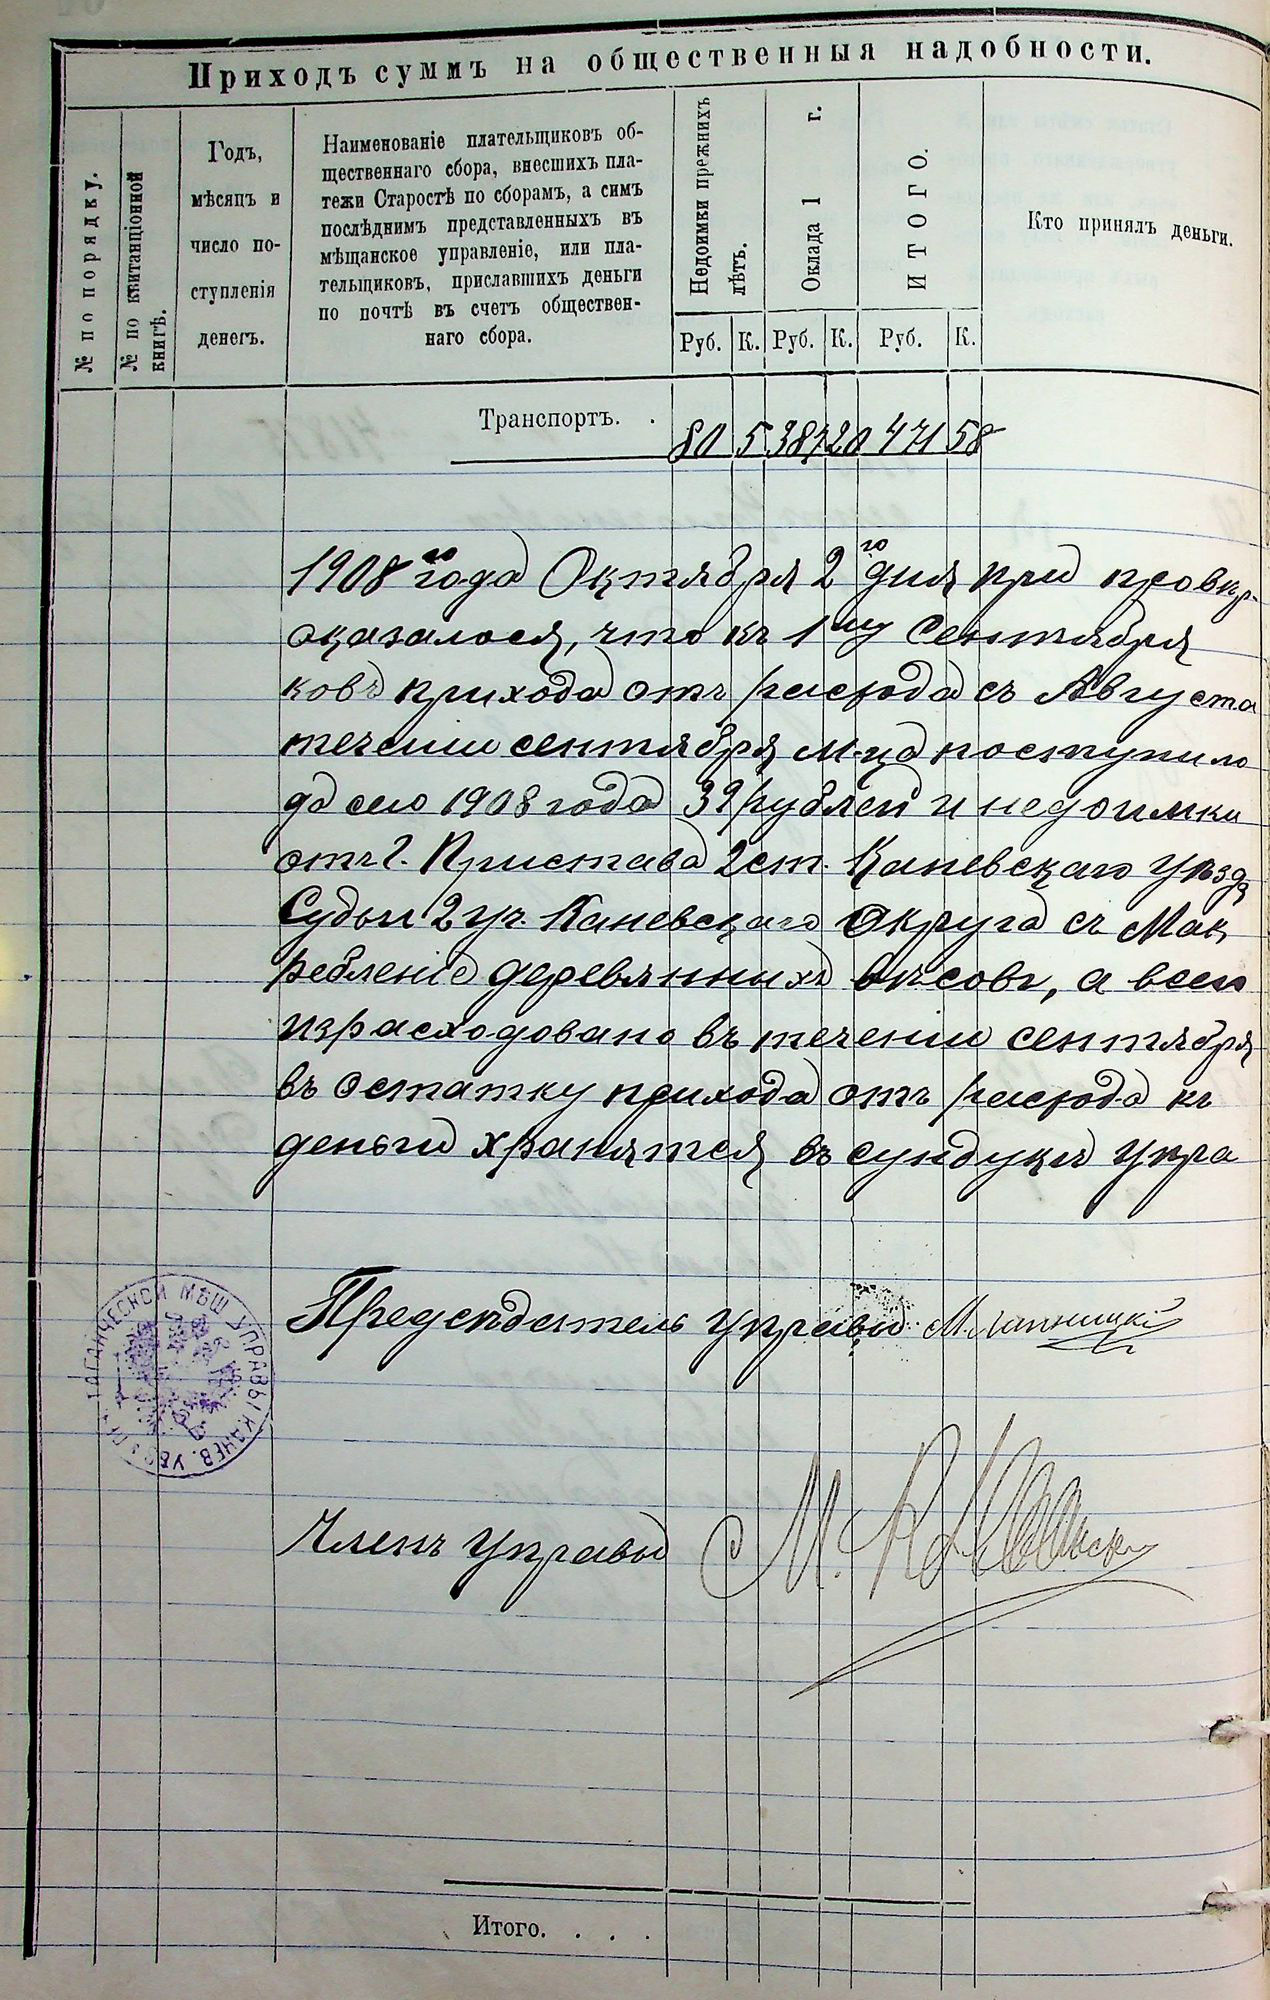 Приходъ суммъ на общественныя надобности.
№ по порядку.
№ по квитанціонной книгѣ.
Годъ, мѣсяцъ и число поступленія денегъ.
Наименованіе плательщиковъ об-
щественнаго сбора, внесшихъ пла-
тежи Старостѣ по сборамъ, а симъ
послѣднимъ представленныхъ въ
мѣщанское управленіе, или пла-
тельщиковъ, приславшихъ деньги
по почтѣ въ счетъ обществен-
наго сбора.
Недоимки прежнихъ лѣтъ.
Оклада 1 г.
ИТОГО.
Кто принялъ деньги.
Руб. К. Руб. К. Руб. К.
Транспортъ. . 80 5 387 20 471 58
1908го года Октября 2го дня при провѣр-
оказалося, что къ 1му Сентября
ковъ прихода отъ расхода съ Августа
теченіи сентября м-ца поступило
да сего 1908 года 39 рублей и недоимки
отъ Г. Пристава 2 ст. Каневскаго уѣзда
Судьи 2 уч. Каневскаго Округа съ Мак
ребленіе деревянныхъ вѣсовъ, а всего
израсходовано въ теченіи сентября
въ остатку прихода отъ расхода къ
деньги хранятся въ сундукѣ упра
Предсѣдатель управы
ТАГАНЧЕСКОЙ МѢЩ. УПРАВЫ КАНЕВ. УѢЗ.
Членъ управы М.
Итого. . . . .